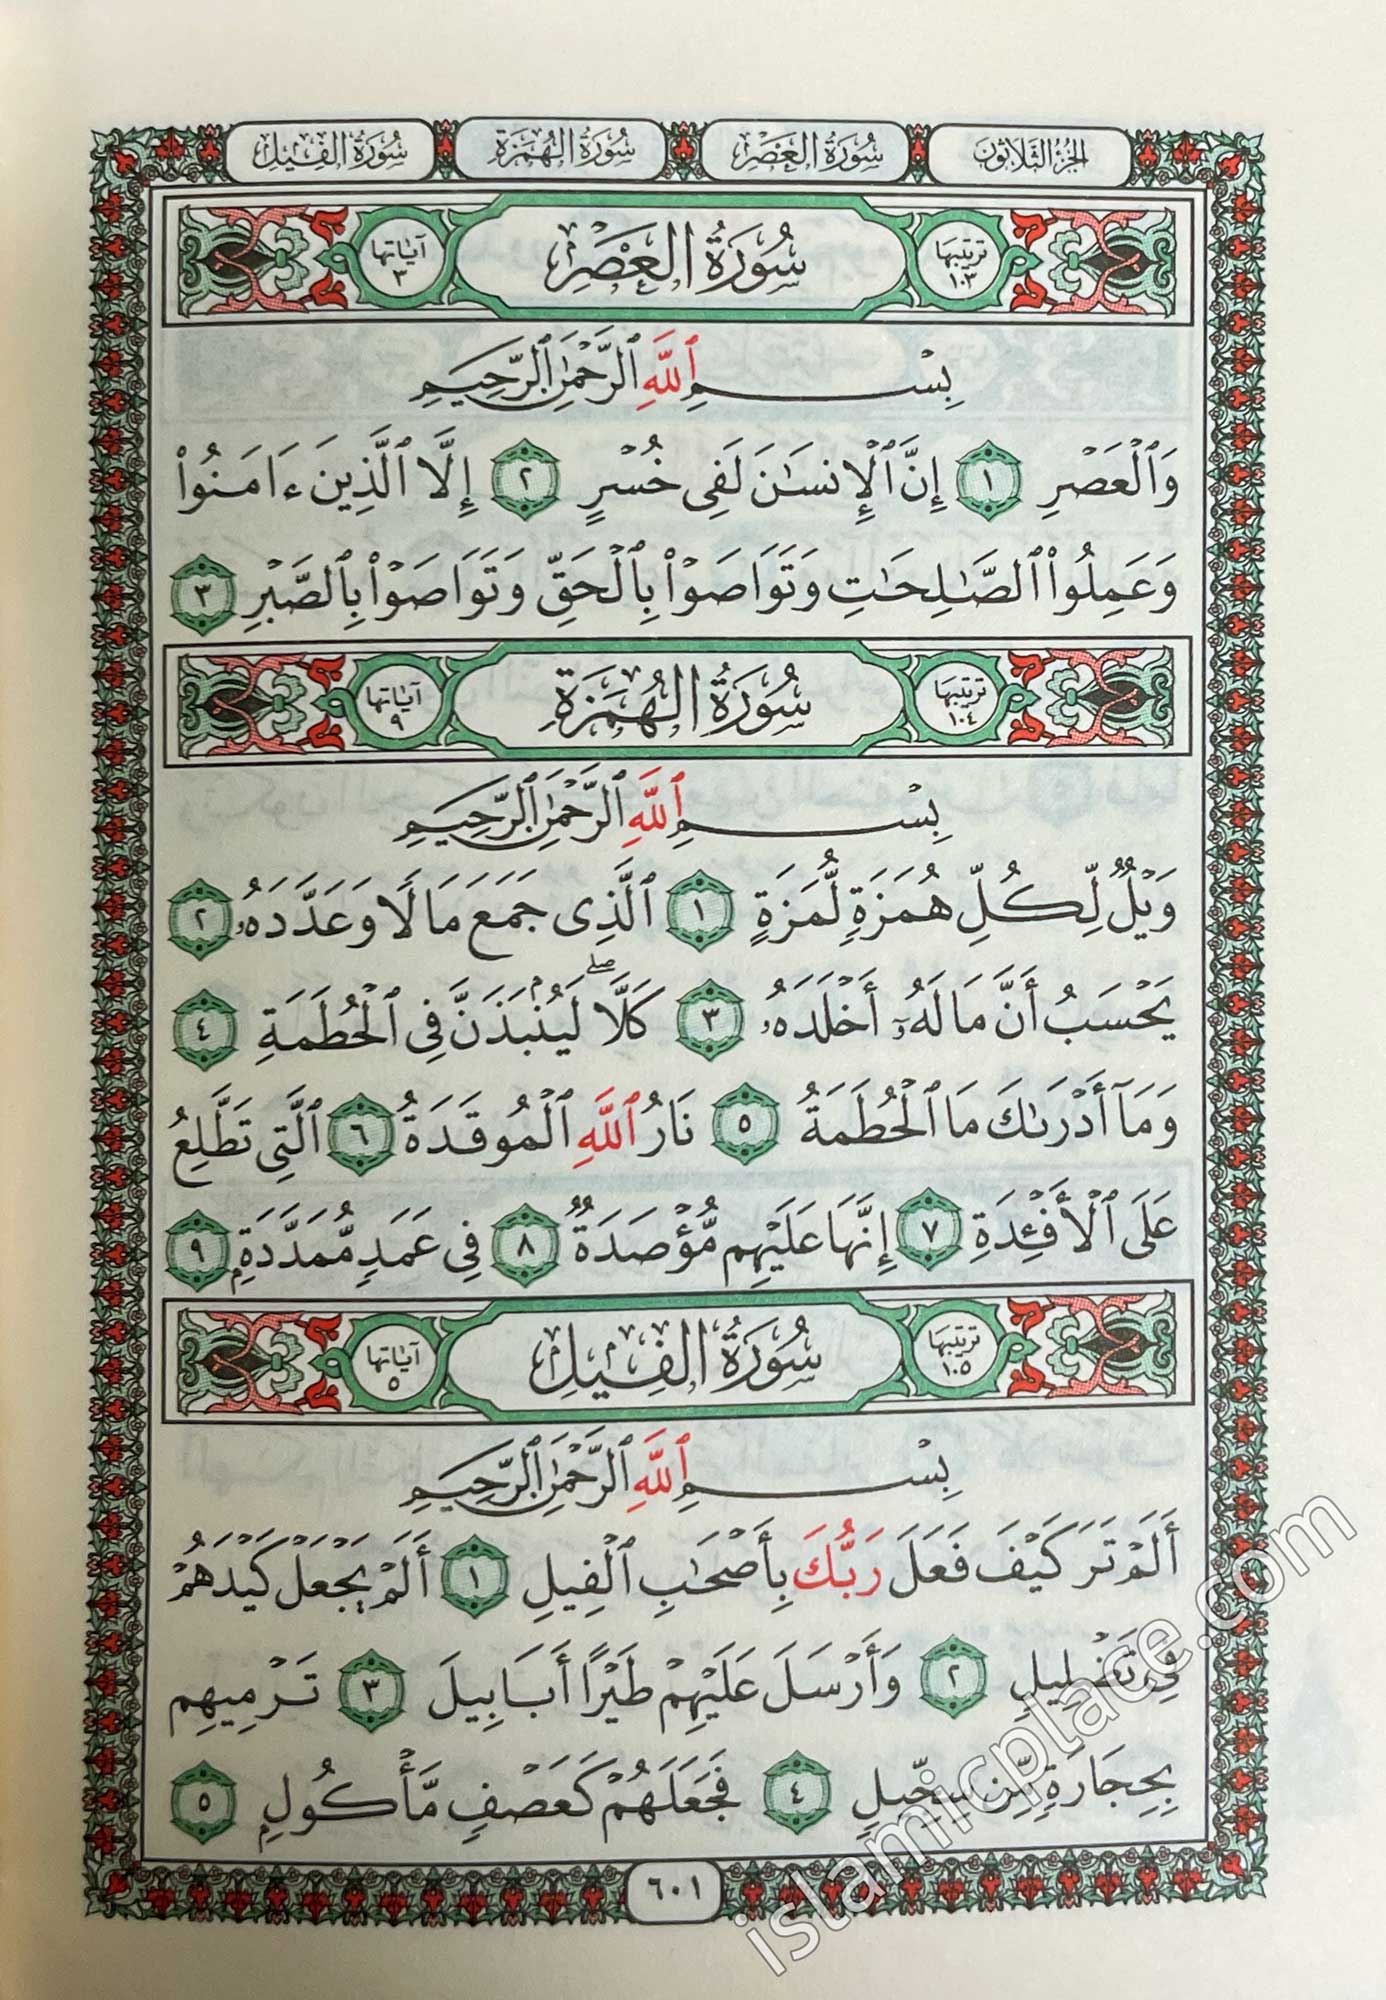 الجزء الثلاثون
سورة العصر
سورة الهمزة
سورة الفيل
ترتيبها ١٠٣
سُورَةُ العَصْرِ
آياتها ٣
بِسْمِ ٱللَّهِ ٱلرَّحْمَٰنِ ٱلرَّحِيمِ
وَٱلْعَصْرِ ١ إِنَّ ٱلْإِنسَٰنَ لَفِى خُسْرٍ ٢ إِلَّا ٱلَّذِينَ ءَامَنُوا۟
وَعَمِلُوا۟ ٱلصَّٰلِحَٰتِ وَتَوَاصَوْا۟ بِٱلْحَقِّ وَتَوَاصَوْا۟ بِٱلصَّبْرِ ٣
ترتيبها ١٠٤
سُورَةُ الهُمَزَةِ
آياتها ٩
بِسْمِ ٱللَّهِ ٱلرَّحْمَٰنِ ٱلرَّحِيمِ
وَيْلٌ لِّكُلِّ هُمَزَةٍ لُّمَزَةٍ ١ ٱلَّذِى جَمَعَ مَالًا وَعَدَّدَهُۥ ٢
يَحْسَبُ أَنَّ مَالَهُۥٓ أَخْلَدَهُۥ ٣ كَلَّا ۖ لَيُنۢبَذَنَّ فِى ٱلْحُطَمَةِ ٤
وَمَآ أَدْرَىٰكَ مَا ٱلْحُطَمَةُ ٥ نَارُ ٱللَّهِ ٱلْمُوقَدَةُ ٦ ٱلَّتِى تَطَّلِعُ
عَلَى ٱلْأَفْـِٔدَةِ ٧ إِنَّهَا عَلَيْهِم مُّؤْصَدَةٌ ٨ فِى عَمَدٍ مُّمَدَّدَةٍۭ ٩
ترتيبها ١٠٥
سُورَةُ الفِيلِ
آياتها ٥
بِسْمِ ٱللَّهِ ٱلرَّحْمَٰنِ ٱلرَّحِيمِ
أَلَمْ تَرَ كَيْفَ فَعَلَ رَبُّكَ بِأَصْحَٰبِ ٱلْفِيلِ ١ أَلَمْ يَجْعَلْ كَيْدَهُمْ
فِى تَضْلِيلٍ ٢ وَأَرْسَلَ عَلَيْهِمْ طَيْرًا أَبَابِيلَ ٣ تَرْمِيهِم
بِحِجَارَةٍ مِّن سِجِّيلٍ ٤ فَجَعَلَهُمْ كَعَصْفٍ مَّأْكُولٍۭ ٥
٦٠١
islamicplace.com